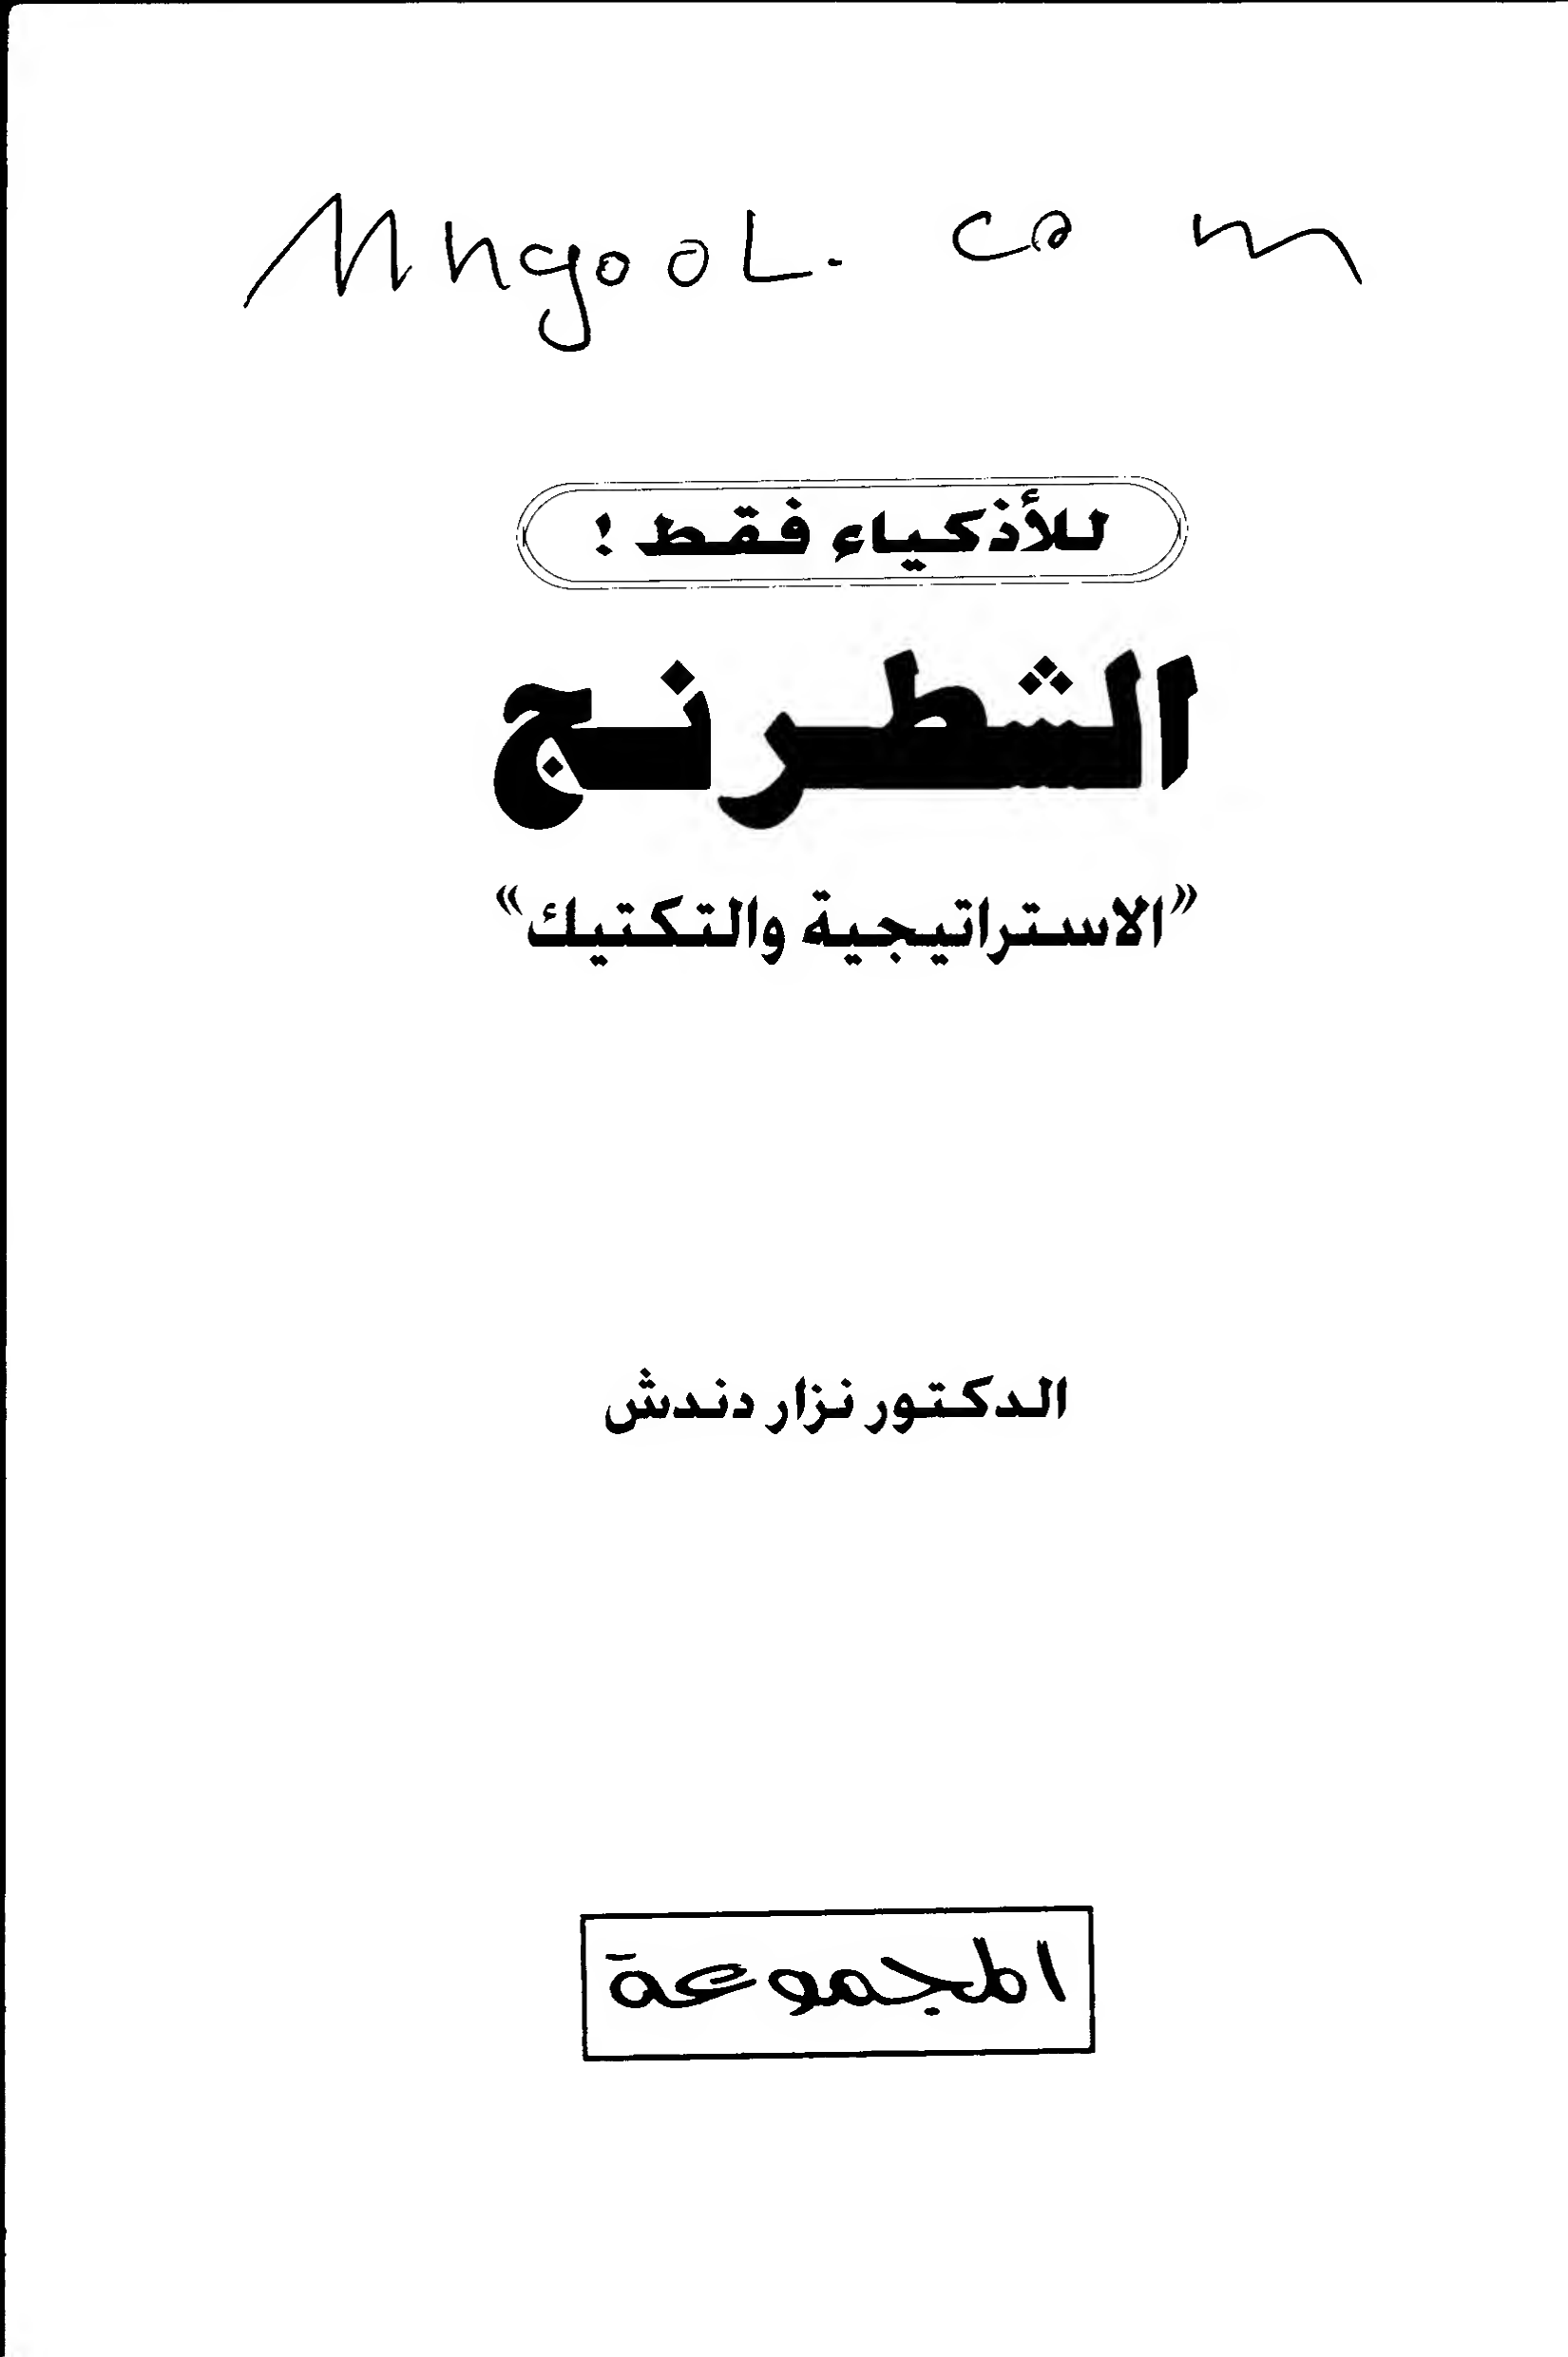 Mngool. com
للأذكياء فقط !
الشطرنج
«الاستراتيجية والتكتيك»
الدكتور نزار دندش
المجموعة